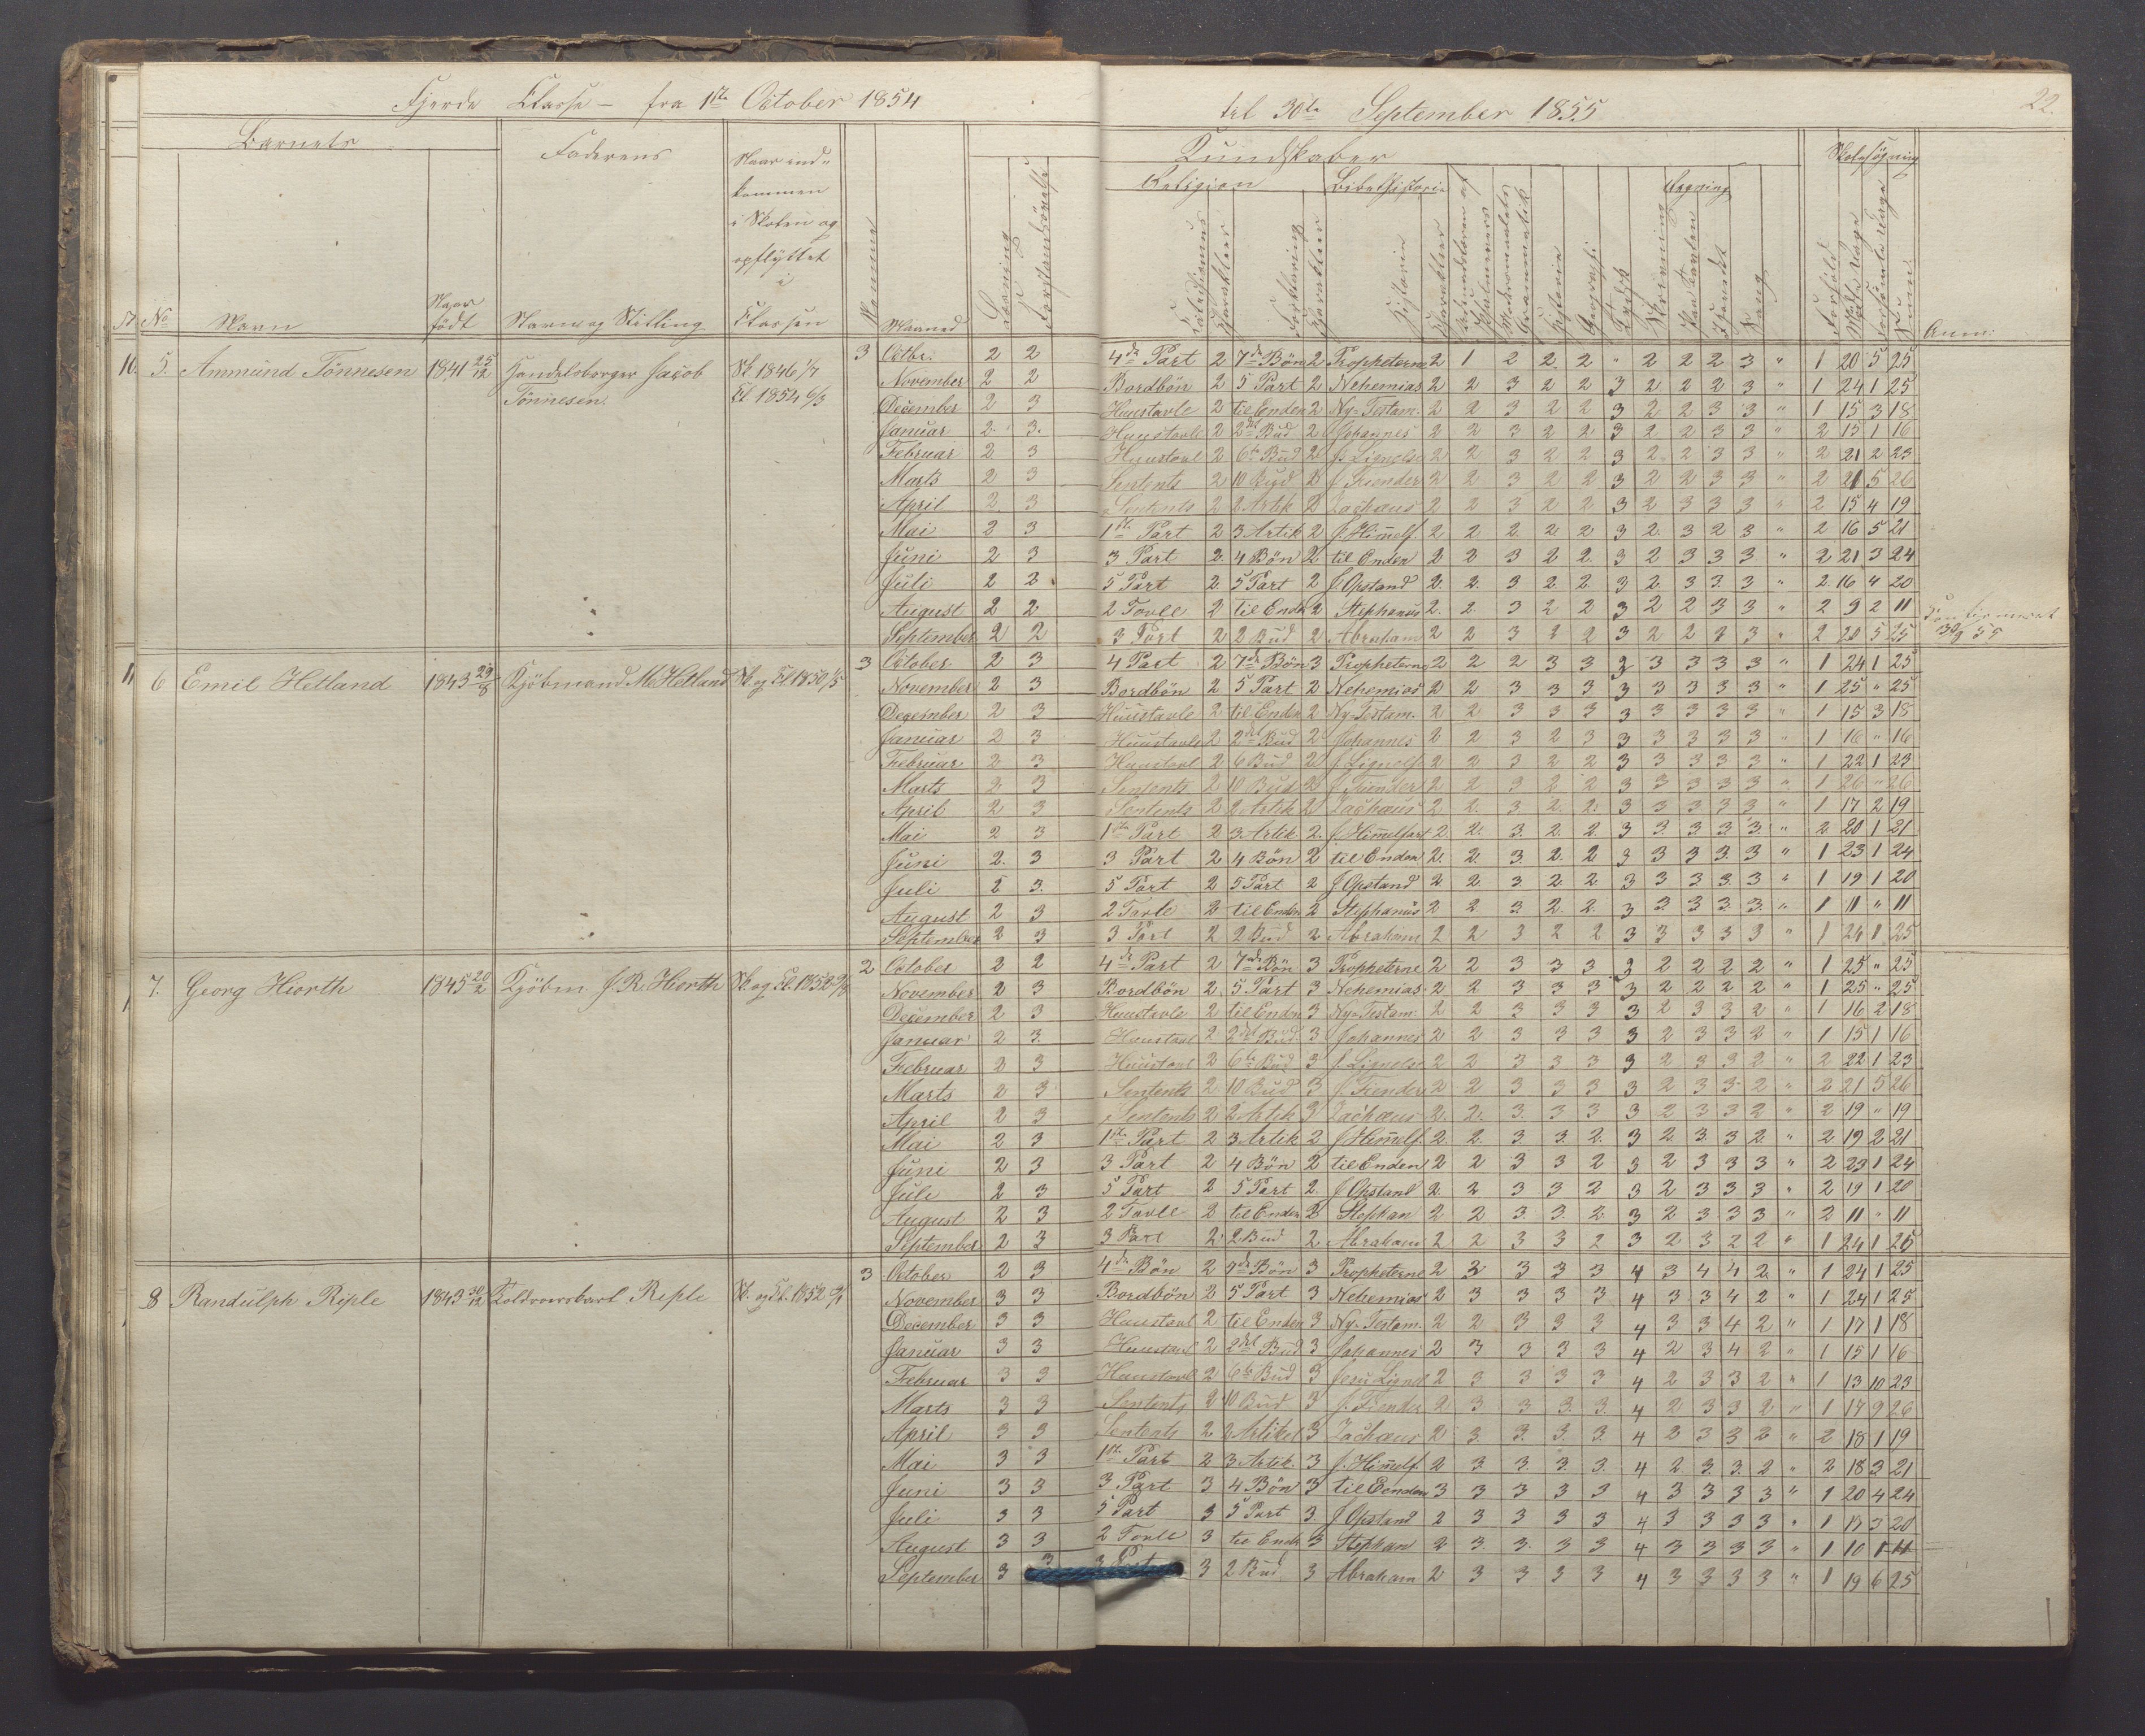 Fjerde Classe — fra 1ste October 1854
til 30te September 1855
22.
Barnets
Faderens
Naar ind-
kommen
i Skolen og
opflyttet
i
Classen
Kundskaber
Skolesøgning
Religion
Bibelhistorie
Regning
No
Navn
Naar
født
Navn og Stilling
Evne
Maaned
Læsning
Forstandsøvelse
Karakter
Forklaring
Karakter
Historie
Karakter
Modersmaalets
Grammatik
Historie
Geografi
Tydsk
Skrivning
paa Tavlen
Sang
Forhold
Sum
Anm:
10. 5. Ammund Tönnesen 1841 25/12 Handelsborger Jacob Sk 1846 1/7 3 Octbr. 2 2 4de Part 2 7de Bön 2 Propheterne 2 1 2 2 2 " 2 2 2 3 " 1 20 5 25
Tönnesen. Cl 1854 6/3 November 2 2 Bordbön 2 5 Part 2 Nehemias 2 2 3 2 2 3 2 2 2 3 " 1 24 1 25
December 2 3 Huustavle 2 til Enden 2 Ny-Testam. 2 2 3 2 2 3 2 2 3 3 " 1 15 3 18
Januar 2 3 Huustavle 2 2det Bud 2 Johannes 2 2 3 2 2 3 2 2 3 3 " 2 15 1 16
Februar 2 3 Huustavl 2 6te Bud 2 Js Lignelse 2 2 3 2 2 3 2 2 3 3 " 2 21 2 23
Marts 2 3 Sentents 2 10 Bud 2 J. Fiender 2 2 3 2 2 3 2 2 3 3 " 2 21 5 26
April 2 3 Sentents 2 2 Artik 2 Zachæus 2 2 3 2 2 3 2 3 3 3 " 2 15 4 19
Mai 2 3 1ste Part 2 3 Artik 2 J. Himelf. 2 2 2 2 2 3 2 3 2 3 " 2 16 5 21
Juni 2 3 3 Part 2 4 Bön 2 til Enden 2 2 3 2 2 3 2 3 3 3 " 2 21 3 24
Juli 2 2 5 Part 2 5 Part 2 J Opstand 2 2 3 2 2 3 2 3 3 3 " 2 16 4 20
August 2 2 2 Tavle 2 til Enden 2 Stephanus 2 2 3 2 2 3 2 2 3 3 " 2 9 2 11 Confirmeret
September 2 2 3 Part 2 2 Bud 2 Abraham 2 2 3 2 2 3 2 2 2 3 " 2 20 5 25 30/9 55
11 6 Emil Hetland 1843 29/8 Kjöbmand M Hetland Sk og Cl 1850 1/5 3 October 2 3 4 Part 2 7de Bön 3 Propheterne 2 2 2 3 3 3 3 3 3 3 " 1 24 1 25
November 2 3 Bordbön 2 5 Part 2 Nehemias 2 2 3 3 3 3 3 3 3 3 " 1 25 " 25
December 2 3 Huustavle 2 til Enden 2 Ny-Testam. 2 2 3 3 3 3 3 3 3 3 " 1 15 3 18
Januar 2 3 Huustavle 2 2det Bud 2 Johannes 2 2 3 2 3 3 3 3 3 3 " 1 16 " 16
Februar 2 3 Huustavl 2 6 Bud 2 J. Lignelse 2 2 3 2 2 3 3 3 3 3 " 1 22 1 23
Marts 2 3 Sentents 2 10 Bud 2 J Fiender 2 2 3 2 2 3 3 3 3 3 " 1 26 " 26
April 2 3 Sentents 2 2 Artik 2 Zachæus 2 2 3 2 2 3 3 3 3 3 " 1 17 2 19
Mai 2 3 1ste Part 2 3 Artik 2 J Himelfart 2 2 3 2 2 3 3 3 3 3 " 2 20 1 21
Juni 2 3 3 Part 2 4 Bön 2 til Enden 2 2 3 2 2 3 3 3 3 3 " 1 23 1 24
Juli 2 3 5 Part 2 5 Part 2 J Opstand 2 2 3 2 2 3 3 3 3 3 " 1 19 1 20
August 2 3 2 Tavle 2 til Enden 2 Stephanus 2 2 3 2 2 3 3 3 3 3 " 1 11 " 11
September 2 3 3 Part 2 2 Bud 2 Abraham 2 2 3 2 2 3 3 3 3 3 " 1 24 1 25
7. Georg Hiorth 1845 20/2 Kjöbm J. R. Hiorth Sk. og Cl. 1852 2 October 2 2 4de Part 2 7de Bön 3 Propheterne 2 2 3 3 3 3 2 2 2 2 " 1 25 " 25
November 2 3 Bordbön 2 5 Part 3 Nehemias 2 2 3 3 3 3 2 2 2 2 " 1 25 " 25
December 2 3 Huustavle 2 til Enden 3 Ny-Testam. 2 2 3 3 3 3 2 3 3 2 " 1 16 2 18
Januar 2 3 Huustavl 2 2det Bud 3 Johannes 2 2 3 3 3 3 2 3 3 2 " 1 15 1 16
Februar 2 3 Huustavl 2 6te Bud 3 J. Lignelse 2 2 3 3 3 3 2 3 3 2 " 2 22 1 23
Marts 2 3 Sentents 2 10 Bud 3 J. Fiender 2 2 3 3 3 3 2 3 3 2 " 2 21 5 26
April 2 3 Sentents 2 2 Artik 3 Zachæus 2 2 3 3 3 3 2 3 3 2 " 2 19 " 19
Mai 2 3 1ste Part 2 3 Artik 2 J Himelf. 2 2 3 3 2 3 2 3 3 2 " 2 19 2 21
Juni 2 3 3 Part 2 4 Bön 2 til Enden 2 2 3 3 2 3 2 3 3 3 " 2 23 1 24
Juli 2 3 5 Part 2 5 Part 2 J Opstand 2 2 3 3 2 3 2 3 3 3 " 2 19 1 20
August 2 3 2 Tavle 2 til Enden 2 Stephan 2 2 3 3 2 3 2 3 3 3 " 2 11 " 11
September 2 3 3 Part 2 2 Bud 2 Abraham 2 2 3 3 2 3 2 3 2 2 " 1 24 1 25
8 Randulph Riple 1843 30/12 Riple Sk. og Cl. 1852 3 October 2 3 4de Bön 2 7de Bön 3 Propheterne 2 3 3 3 3 4 3 4 4 2 " 1 24 1 25
November 3 3 Bordbön 2 5 Part 3 Nehemias 2 3 3 3 3 4 3 3 4 2 " 1 24 1 25
December 3 3 Huustavl 2 til Enden 3 Ny-Testam. 2 2 3 3 3 4 3 3 4 2 " 1 17 1 18
Januar 3 3 Huustavl 2 2det Bud 3 Johannes 2 3 3 3 3 4 2 3 4 2 " 1 15 1 16
Februar 3 3 Huustavl 2 6te Bud 3 Jesu Lignel 2 3 3 3 3 4 2 3 3 2 " 1 13 10 23
Marts 3 3 Sentents 2 10 Bud 3 J. Fiender 2 3 3 3 3 4 2 3 3 2 " 1 17 9 26
April 3 3 Sentents 2 2 Artikel 3 Zachæus 2 3 3 3 3 4 2 3 3 2 " 2 18 1 19
Mai 3 3 1ste Part 2 3 Artik. 3 J. Himelf. 2 3 3 3 3 4 2 3 3 2 " 2 18 3 21
Juni 3 3 3 Part 3 4 Bön 3 til Eenden 3 3 3 3 3 4 3 3 3 3 " 1 20 4 24
Juli 3 3 5 Part 3 5 Part 3 J Opstand 2 3 3 3 3 4 3 3 3 3 " 1 17 3 20
August 3 3 2 Tavle 3 til Ende 3 Stephan 2 3 3 3 3 4 3 3 3 3 " 1 10 1 11
September 3 3 3 3 2 Bud 3 Abraham 2 3 3 3 3 4 3 3 3 3 " 1 19 6 25